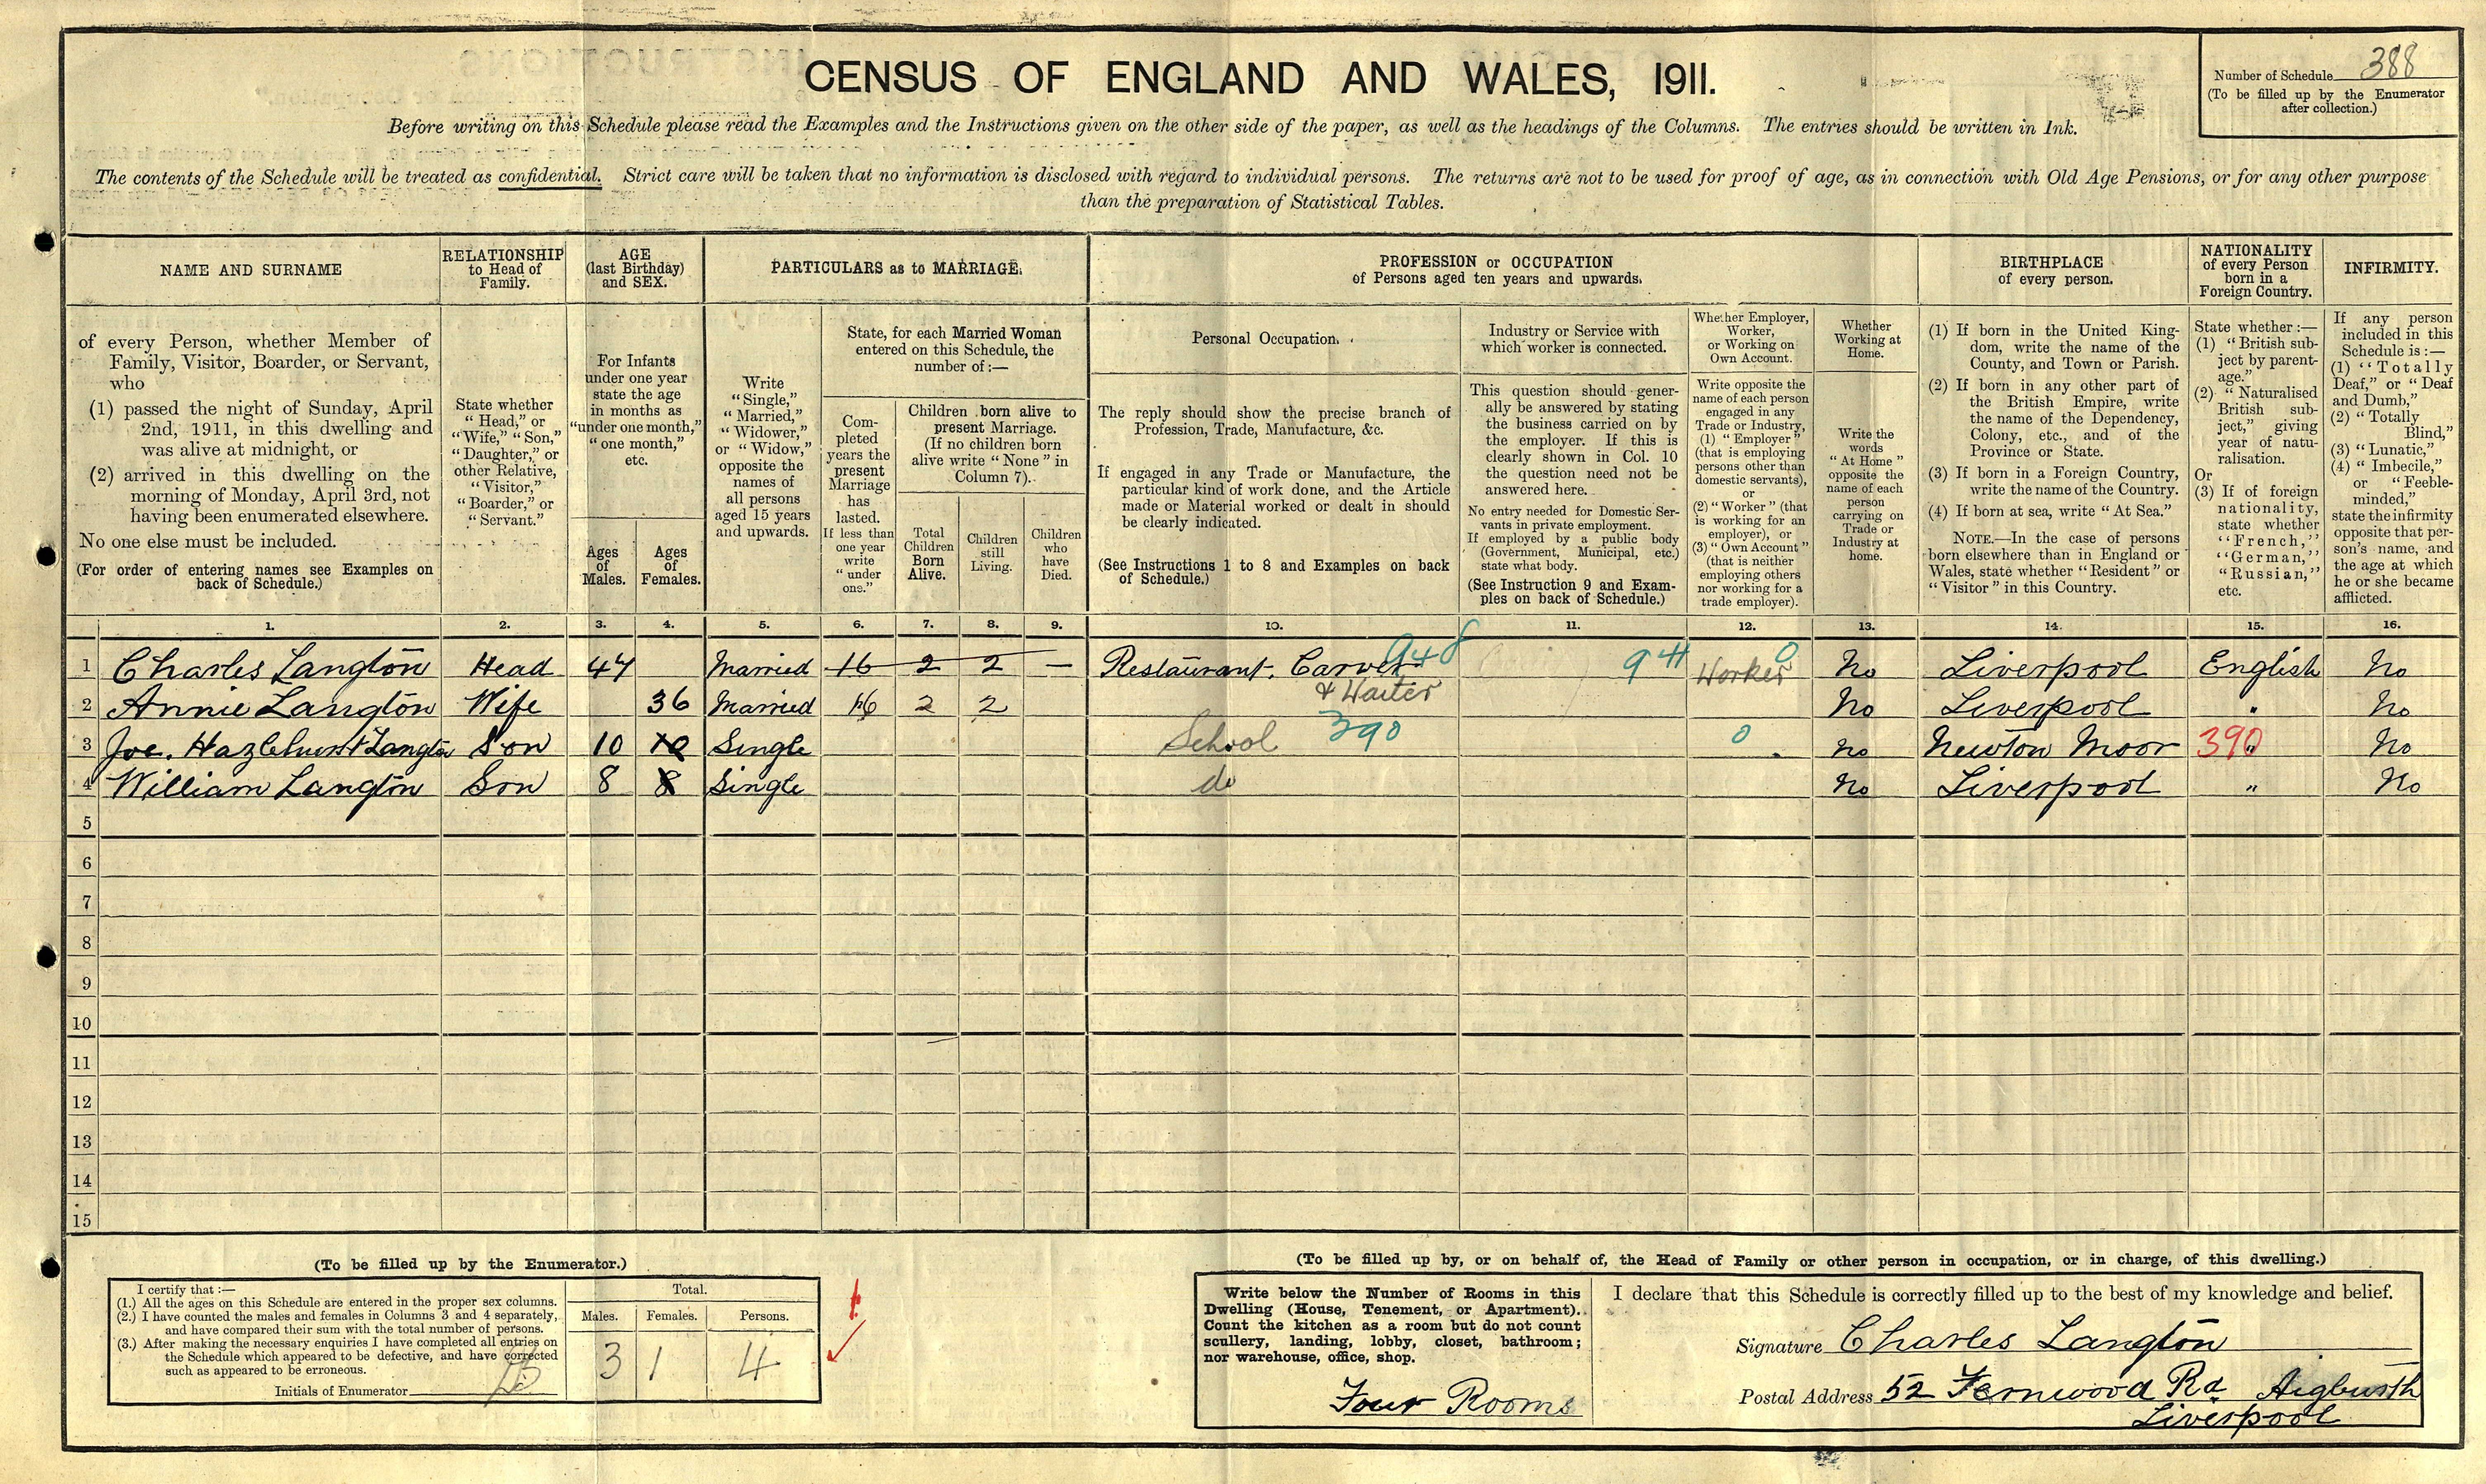 CENSUS OF ENGLAND AND WALES, 1911.
Number of Schedule 388
(To be filled up by the Enumerator
after collection.)
Before writing on this Schedule please read the Examples and the Instructions given on the other side of the paper, as well as the headings of the Columns. The entries should be written in Ink.
The contents of the Schedule will be treated as confidential. Strict care will be taken that no information is disclosed with regard to individual persons. The returns are not to be used for proof of age, as in connection with Old Age Pensions, or for any other purpose
than the preparation of Statistical Tables.
NAME AND SURNAME
of every Person, whether Member of
Family, Visitor, Boarder, or Servant,
who
(1) passed the night of Sunday, April
2nd, 1911, in this dwelling and
was alive at midnight, or
(2) arrived in this dwelling on the
morning of Monday, April 3rd, not
having been enumerated elsewhere.
No one else must be included.
(For order of entering names see Examples on
back of Schedule.)
RELATIONSHIP
to Head of
Family.
State whether
"Head," or
"Wife," "Son,"
"Daughter," or
other Relative,
"Visitor,"
"Boarder," or
"Servant."
AGE
(last Birthday)
and SEX.
For Infants
under one year
state the age
in months as
"under one month,"
"one month,"
etc.
Ages
of
Males.
Ages
of
Females.
PARTICULARS as to MARRIAGE.
Write
"Single,"
"Married,"
"Widower,"
or "Widow,"
opposite the
names of
all persons
aged 15 years
and upwards.
State, for each Married Woman
entered on this Schedule, the
number of :—
Com-
pleted
years the
present
Marriage
has
lasted.
If less than
one year
write
"under
one."
Children born alive to
present Marriage.
(If no children born
alive write "None" in
Column 7).
Total
Children
Born
Alive.
Children
still
Living.
Children
who
have
Died.
PROFESSION or OCCUPATION
of Persons aged ten years and upwards.
Personal Occupation.
The reply should show the precise branch of
Profession, Trade, Manufacture, &c.
If engaged in any Trade or Manufacture, the
particular kind of work done, and the Article
made or Material worked or dealt in should
be clearly indicated.
(See Instructions 1 to 8 and Examples on back
of Schedule.)
Industry or Service with
which worker is connected.
This question should gener-
ally be answered by stating
the business carried on by
the employer. If this is
clearly shown in Col. 10
the question need not be
answered here.
No entry needed for Domestic Ser-
vants in private employment.
If employed by a public body
(Government, Municipal, etc.)
state what body.
(See Instruction 9 and Exam-
ples on back of Schedule.)
Whether Employer,
Worker,
or Working on
Own Account.
Write opposite the
name of each person
engaged in any
Trade or Industry,
(1) "Employer"
(that is employing
persons other than
domestic servants),
or
(2) "Worker" (that
is working for an
employer), or
(3) "Own Account"
(that is neither
employing others
nor working for a
trade employer).
Whether
Working at
Home.
Write the
words
"At Home"
opposite the
name of each
person
carrying on
Trade or
Industry at
home.
BIRTHPLACE
of every person.
(1) If born in the United King-
dom, write the name of the
County, and Town or Parish.
(2) If born in any other part of
the British Empire, write
the name of the Dependency,
Colony, etc., and of the
Province or State.
(3) If born in a Foreign Country,
write the name of the Country.
(4) If born at sea, write "At Sea."
NOTE.—In the case of persons
born elsewhere than in England or
Wales, state whether "Resident" or
"Visitor" in this Country.
NATIONALITY
of every Person
born in a
Foreign Country.
State whether :—
(1) "British sub-
ject by parent-
age."
(2) "Naturalised
British sub-
ject," giving
year of natu-
ralisation.
Or
(3) If of foreign
nationality,
state whether
"French,"
"German,"
"Russian,"
etc.
INFIRMITY.
If any person
included in this
Schedule is :—
(1) "Totally
Deaf," or "Deaf
and Dumb,"
(2) "Totally
Blind,"
(3) "Lunatic,"
(4) "Imbecile,"
or "Feeble-
minded,"
state the infirmity
opposite that per-
son's name, and
the age at which
he or she became
afflicted.
1. 2. 3. 4. 5. 6. 7. 8. 9. 10. 11. 12. 13. 14. 15. 16.
1 Charles Langton Head 47 Married 16 2 2 — Restaurant. Carver 948 941 Worker 0 No Liverpool English No
& Waiter
2 Annie Langton Wife 36 Married 16 2 2 No Liverpool " No
3 Joe. Hazlehurst Langton Son 10 10 Single School 390 0 No Newton Moor 390 " No
4 William Langton Son 8 8 Single do No Liverpool " No
5
6
7
8
9
10
11
12
13
14
15
(To be filled up by the Enumerator.)
I certify that :—
(1.) All the ages on this Schedule are entered in the proper sex columns.
(2.) I have counted the males and females in Columns 3 and 4 separately,
and have compared their sum with the total number of persons.
(3.) After making the necessary enquiries I have completed all entries on
the Schedule which appeared to be defective, and have corrected
such as appeared to be erroneous.
Initials of Enumerator
Total.
Males. Females. Persons.
3 1 4
(To be filled up by, or on behalf of, the Head of Family or other person in occupation, or in charge, of this dwelling.)
Write below the Number of Rooms in this
Dwelling (House, Tenement, or Apartment).
Count the kitchen as a room but do not count
scullery, landing, lobby, closet, bathroom;
nor warehouse, office, shop.
Four Rooms
I declare that this Schedule is correctly filled up to the best of my knowledge and belief.
Signature Charles Langton
Postal Address 52 Fernwood Rd Aigburth
Liverpool